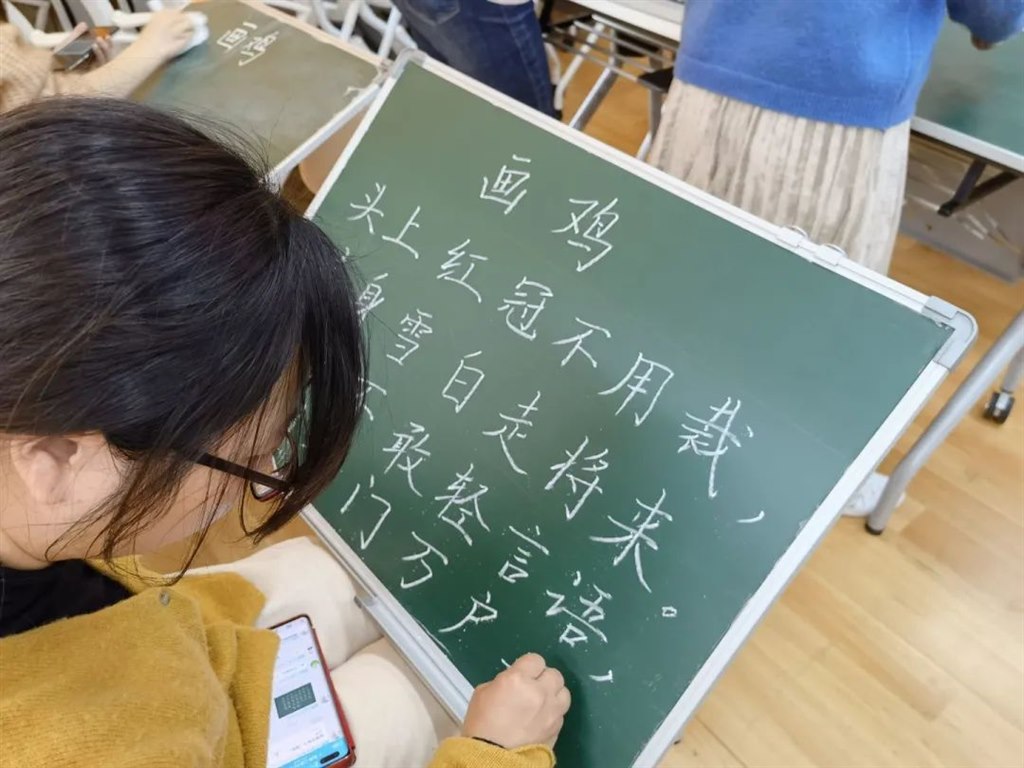 画鸡
画鸡
头上红冠不用裁，
身雪白走将来。
不敢轻言语，
门万户